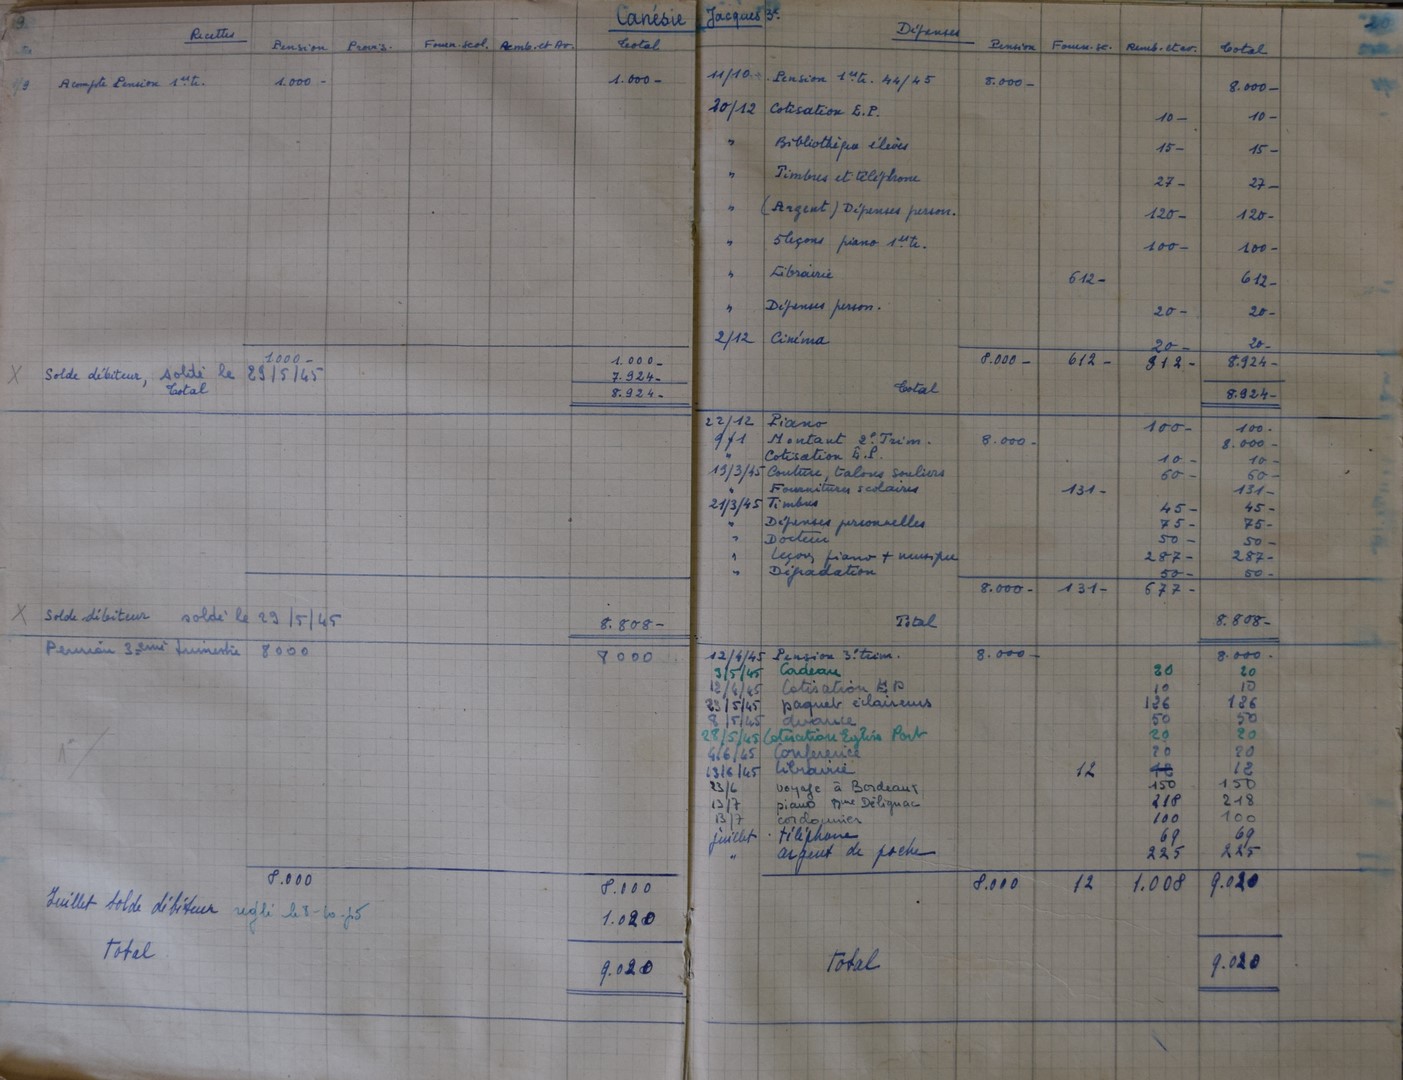 Canésie Jacques 3e
Recettes
Pension Fourn. scol. Remb. et Av. Total
Acompte Pension 1er te. 1.000 - 1.000 -
1000 - 1.000 -
X Solde débiteur, soldé le 29/5/45 7.924 -
Total 8.924 -
X Solde débiteur soldé le 29/5/45 8.808 -
Pension 3ème trimestre 8000 8000
8.000 8.000
Juillet solde débiteur réglé le 3-10-45 1.020
Total 9.020
Dépenses
Pension Fourn. sc. Remb. et av. Total
11/10 Pension 1er te. 44/45 8.000 - 8.000 -
20/12 Cotisation E.P. 10 - 10 -
" Bibliothèque élèves 15 - 15 -
" Timbres et téléphone 27 - 27 -
" (Argent) Dépenses person. 120 - 120 -
" 5 leçons piano 1er te. 100 - 100 -
" Librairie 612 - 612 -
" Dépenses person. 20 - 20 -
2/12 Cinéma 20 - 20 -
8.000 - 612 - 312 - 8.924 -
Total 8.924 -
22/12 Piano 100 - 100 -
9/1 Montant 2e Trim. 8.000 - 8.000 -
" Cotisation E.P. 10 - 10 -
19/3/45 Couture, talons souliers 60 - 60 -
" Fournitures scolaires 131 - 131 -
21/3/45 Timbres 45 - 45 -
" Dépenses personnelles 75 - 75 -
" Docteur 50 - 50 -
" Leçons piano + musique 287 - 287 -
" Dégradation 50 - 50 -
8.000 - 131 - 677 -
Total 8.808 -
12/4/45 Pension 3e trim. 8.000 - 8.000 -
3/5/45 Cadeau 20 20
12/4/45 Cotisation E P 10 10
23/5/45 paquet éclaireurs 126 126
8/5/45 avance 50 50
28/5/45 Cotisation Eglise Port 20 20
4/6/45 Conférence 20 20
13/6/45 Librairie 12 12 12
23/6 voyage à Bordeaux 150 150
13/7 piano Mme Délignac 218 218
13/7 cordonnier 100 100
juillet téléphone 69 69
" argent de poche 225 225
8.000 12 1.008 9.020
Total 9.020